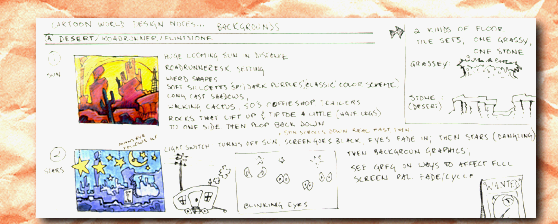 CARTOON WORLD DESIGN NOTES... BACKGROUNDS
A DESERT/ROADRUNNER/FLINTSTONE
1
SUN
HUGE LOOMING SUN IN DISTANCE
ROADRUNNERESK SETTING
WEIRD SHAPES
DARK PURPLES (CLASSIC COLOR SCHEME)
LONG CAST SHADOWS,
WALKING CACTUS, 50'S COFFIE SHOP
ROCKS THAT LIFT UP & TIPTOE A LITTLE (HALF LEGS)
TO ONE SIDE THEN PLOP BACK DOWN
2
STARS
LIGHT SWITCH TURNS OFF SUN SCREEN GOES BLACK EYES FADE IN, THEN STARS (DANGLING)
THEN BACKGROUN GRAPHICS,
SET GREG IN WAYS TO AFFECT FULL
SCREEN PAL FADE/CYCLE
BLINKING EYES
2 KINDS OF FLOOR
TILE SETS, ONE GRASSY,
ONE STONE
GRASSEY
STONE
(DESERT)
WANTED